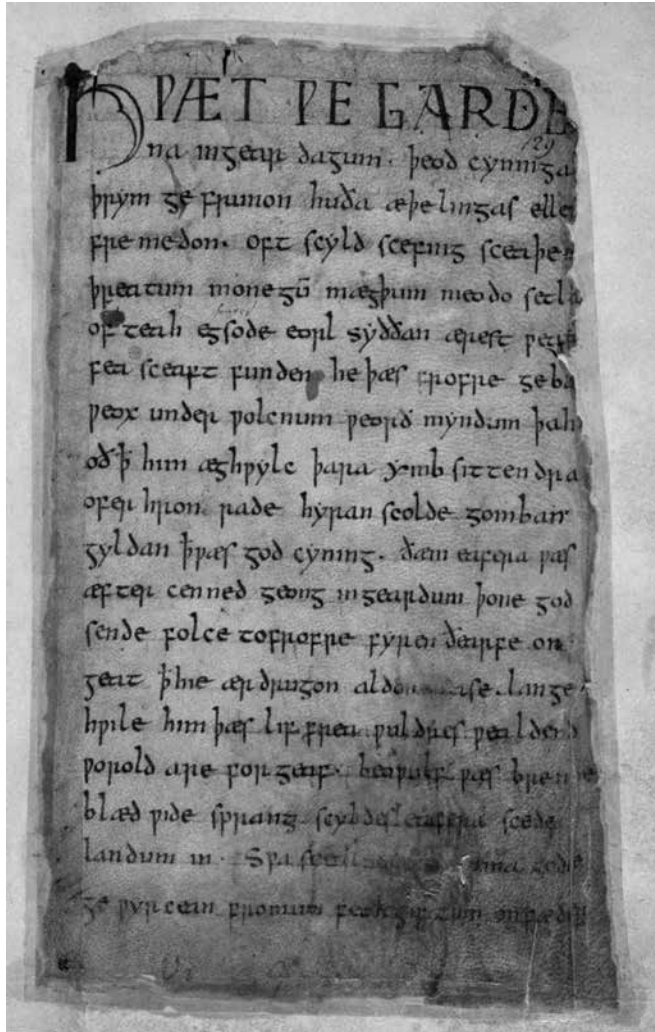 HǷÆT ǷE GARDE
129
na ingear dagum. þeod cyninga
þrym ge frunon huða æþelingas elle
fre medon. oft scyld scefing sceaþe
þreatum monegū mægþum meodo setla
of teah egsode eorl syððan ærest ƿear
fea sceaft funden he þæs frofre geba
ƿeox under ƿolcnum ƿeorð myndum þah
oð ꝥ him æghƿylc þara ymb sittendra
ofer hron rade hyran scolde gomban
gyldan ꝥ ƿæs god cyning. ðæm eafera ƿæs
æfter cenned geong ingeardum þone god
sende folce tofrofre fyren ðearfe on
geat ꝥ hie ær drugon aldor ase. lange
hƿile him þæs lif frea ƿuldres ƿealdend
ƿorold are for geaf. beoƿulf ƿæs breme
blæd ƿide sprang scyldes eafera scede
landum in. Sƿa sceal ma gode
ge ƿyrcean fromum feoh giftum